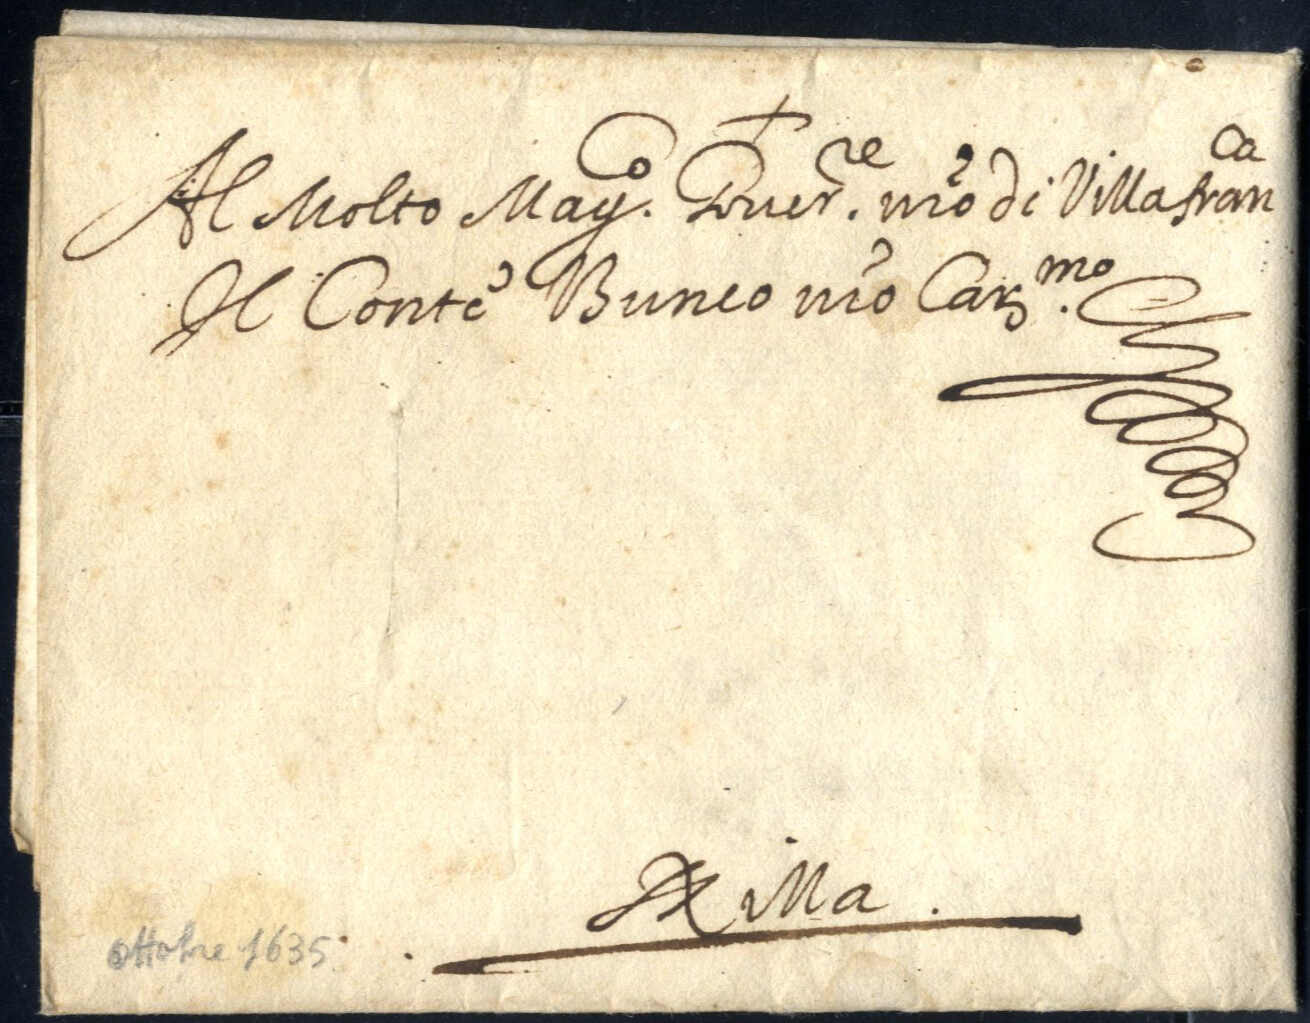 Al Molto Mag.co Gover.re nrõ di Villafranca
Il Conte Buneo nrõ Car.mo
Villa.
ottobre 1635